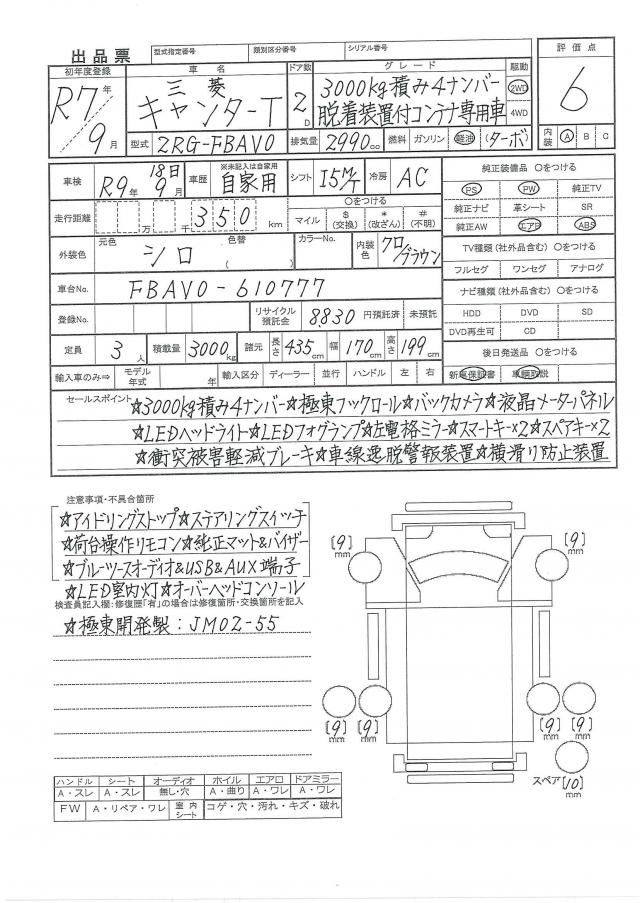 出品票 型式指定番号 類別区分番号 シリアル番号
初年度登録 車名 ドア数 グレード 駆動 評価点
R7年 三菱 2D 3000kg積み4ナンバー 2WD 6
9月 キャンターT 脱着装置付コンテナ専用車 4WD
型式 2RG-FBAV0 排気量 2990cc 燃料 ガソリン 軽油 (ターボ) 内装 A B C
車検 R9年 18日 9月 車歴 ※未記入は自家用 自家用 シフト I5M/T 冷房 AC 純正装備品 ○をつける
PS PW 純正TV
走行距離 万 千 350 km ○をつける マイル $(交換) *(改ざん) #(不明) 純正ナビ 革シート SR
純正AW エアB ABS
外装色 元色 シロ 色替 ( ) カラーNo. 内装色 クロ/ブラウン TV種類(社外品含む) ○をつける
フルセグ ワンセグ アナログ
車台No. FBAV0-610777 ナビ種類(社外品含む) ○をつける
登録No. リサイクル預託金 8,830 円預託済 未預託 HDD DVD SD
DVD再生可 CD
定員 3人 積載量 3000kg 諸元 長さ 435cm 幅 170cm 高さ 199cm 後日発送品 ○をつける
輸入車のみ⇒ モデル年式 年 輸入区分 ディーラー 並行 ハンドル 左 右 新車保証書 車輌取説
セールスポイント ☆3000kg積み4ナンバー☆極東フックロール☆バックカメラ☆液晶メーターパネル
☆LEDヘッドライト☆LEDフォグランプ☆左電格ミラー☆スマートキー×2☆スペアキー×2
☆衝突被害軽減ブレーキ☆車線逸脱警報装置☆横滑り防止装置
注意事項・不具合箇所
☆アイドリングストップ☆ステアリングスイッチ
☆荷台操作リモコン☆純正マット&バイザー
☆ブルーツースオーディオ&USB&AUX端子
☆LED室内灯☆オーバーヘッドコンソール
検査員記入欄:修復歴「有」の場合は修復箇所・交換箇所を記入
☆極東開発製:JM02-55
[9]mm [9]mm
[9]mm [9]mm [9]mm [9]mm
スペア[10]mm
ハンドル シート オーディオ ホイル エアロ ドアミラー
A・スレ A・スレ 無し・穴 A・曲り A・ワレ A・ワレ
FW A・リペア・ワレ 室内シート コゲ・穴・汚れ・キズ・破れ